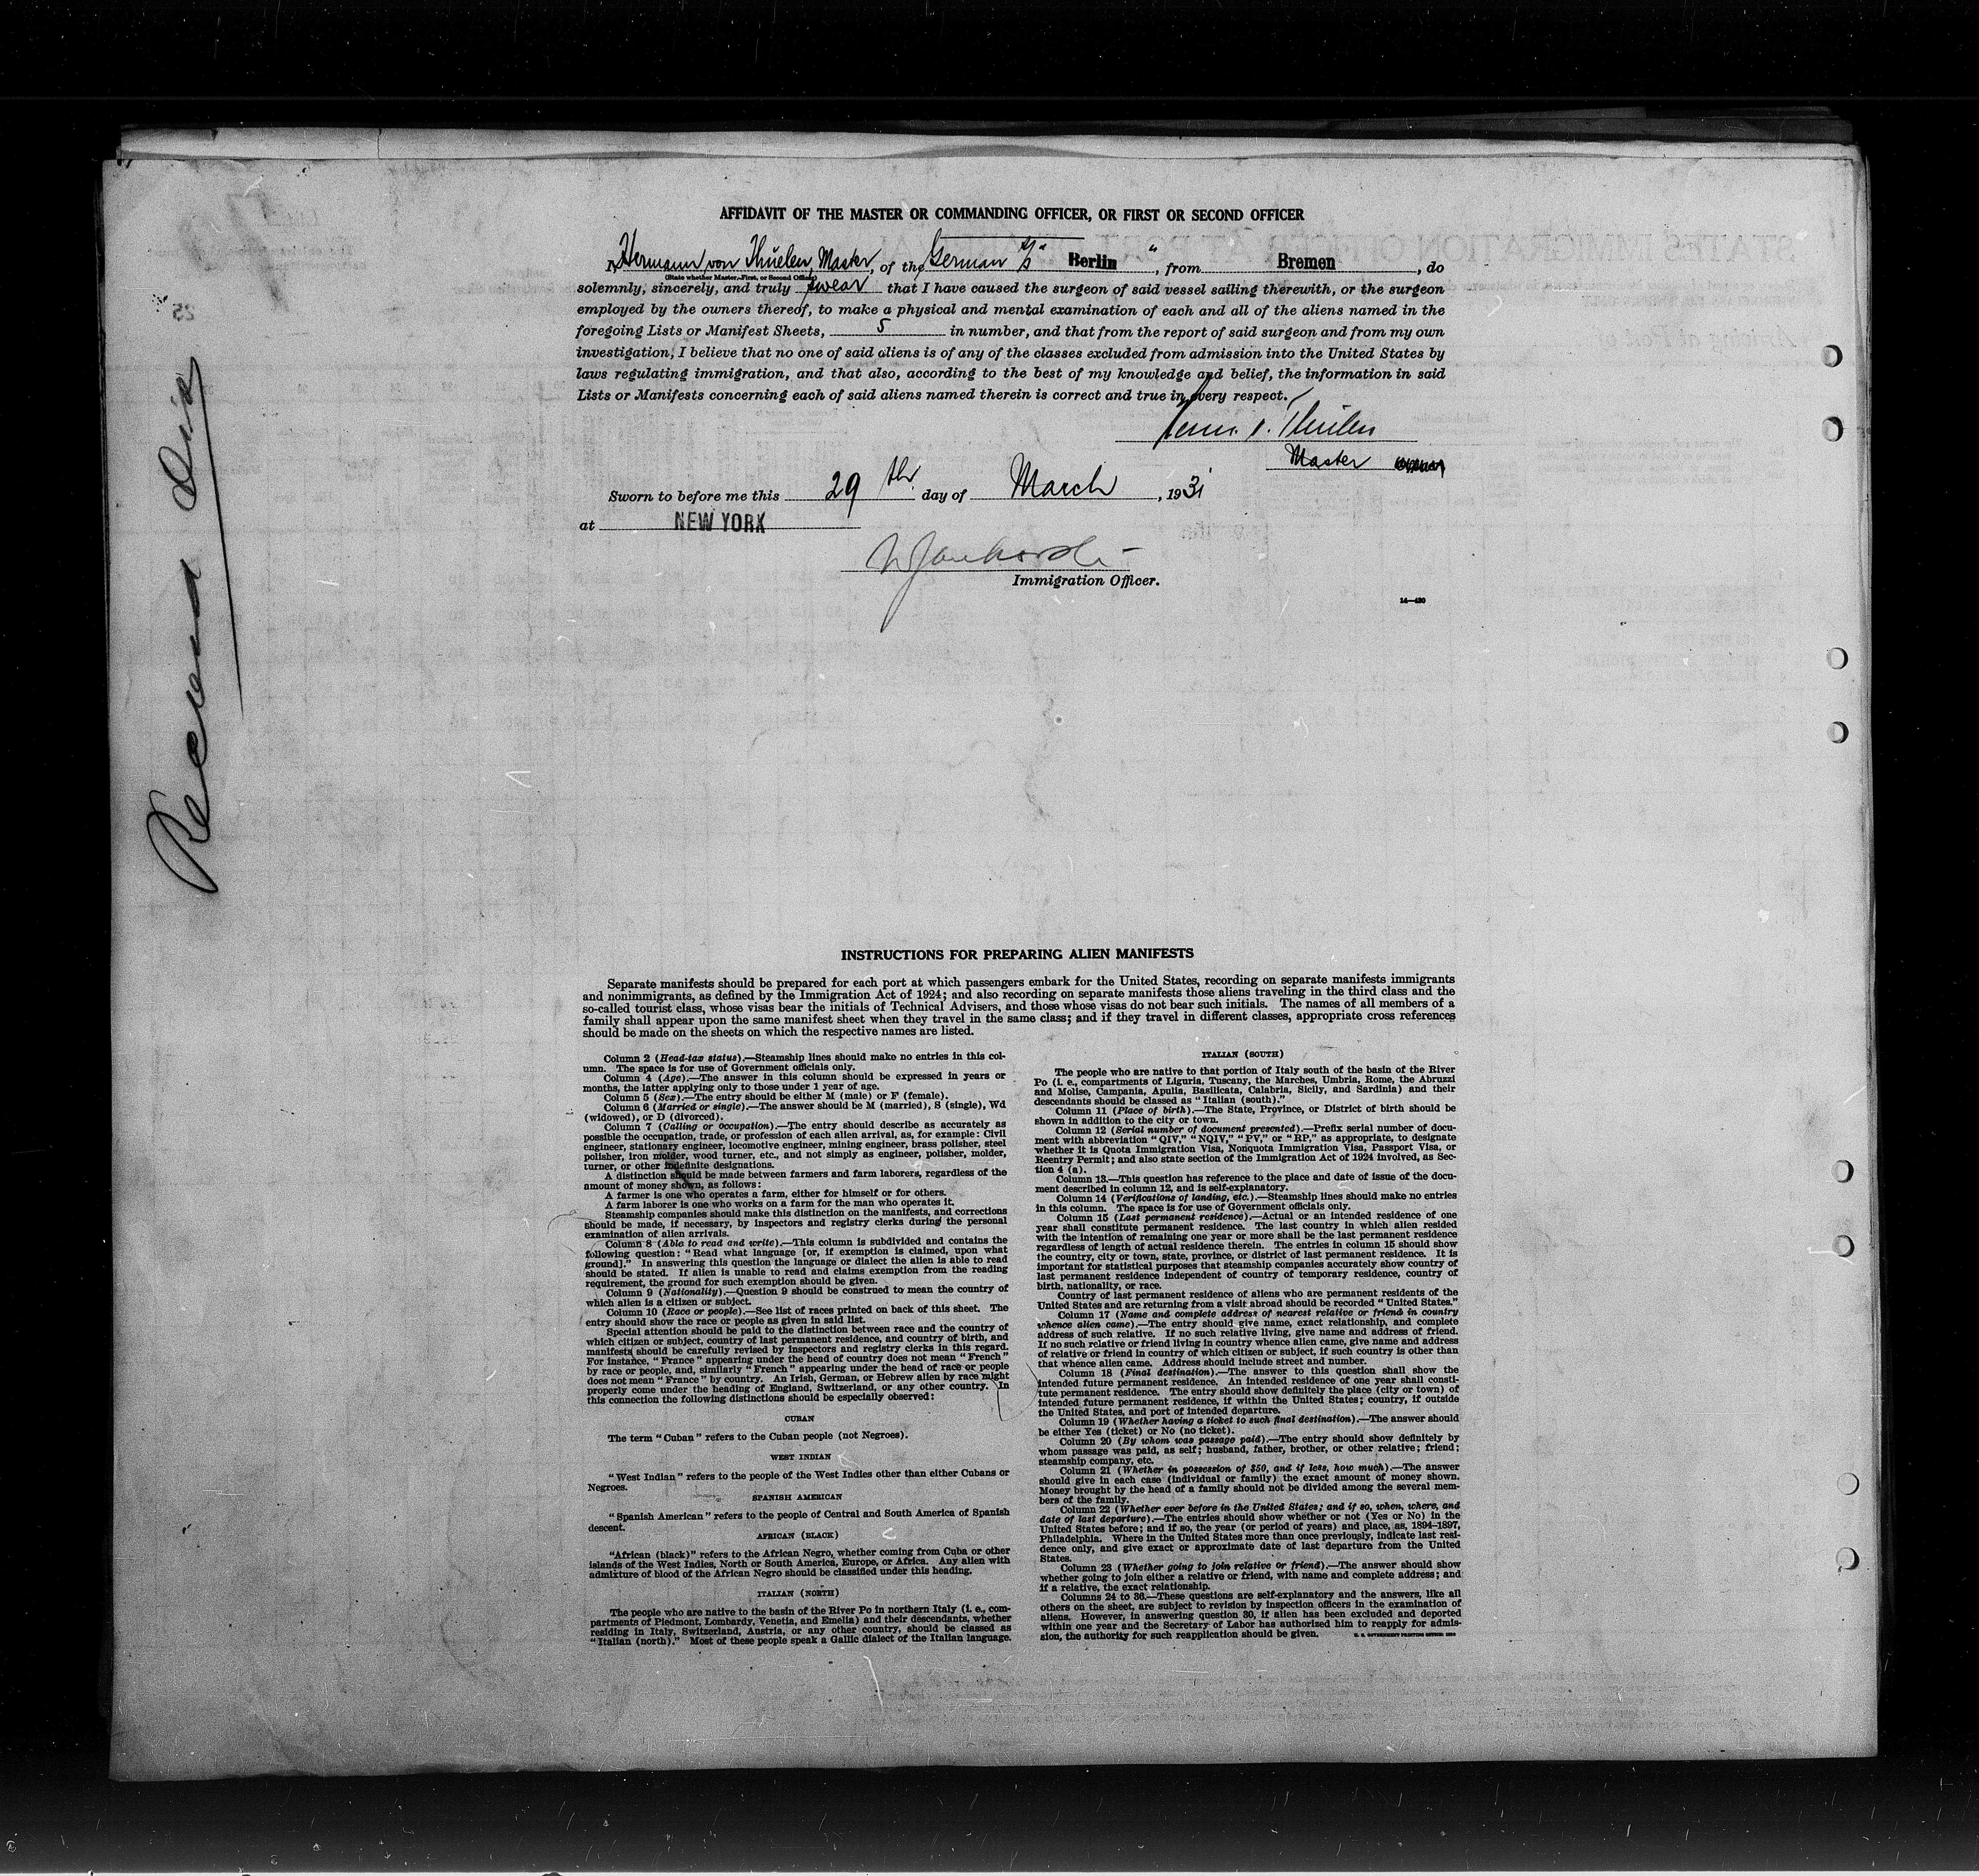 AFFIDAVIT OF THE MASTER OR COMMANDING OFFICER, OR FIRST OR SECOND OFFICER
I, Hermann von Thuelen, Master, of the German S/S " Berlin ", from Bremen, do
(State whether Master, First, or Second Officer)
solemnly, sincerely, and truly swear that I have caused the surgeon of said vessel sailing therewith, or the surgeon
employed by the owners thereof, to make a physical and mental examination of each and all of the aliens named in the
foregoing Lists or Manifest Sheets, 5 in number, and that from the report of said surgeon and from my own
investigation, I believe that no one of said aliens is of any of the classes excluded from admission into the United States by
laws regulating immigration, and that also, according to the best of my knowledge and belief, the information in said
Lists or Manifests concerning each of said aliens named therein is correct and true in every respect.
Thuelen
Master
Sworn to before me this 29th day of March, 1931
at NEW YORK
Immigration Officer.
14—430
Record
INSTRUCTIONS FOR PREPARING ALIEN MANIFESTS
Separate manifests should be prepared for each port at which passengers embark for the United States, recording on separate manifests immigrants
and nonimmigrants, as defined by the Immigration Act of 1924; and also recording on separate manifests those aliens traveling in the third class and the
so-called tourist class, whose visas bear the initials of Technical Advisers, and those whose visas do not bear such initials. The names of all members of a
family shall appear upon the same manifest sheet when they travel in the same class; and if they travel in different classes, appropriate cross references
should be made on the sheets on which the respective names are listed.
Column 2 (Head-tax status).—Steamship lines should make no entries in this col-
umn. The space is for use of Government officials only.
Column 4 (Age).—The answer in this column should be expressed in years or
months, the latter applying only to those under 1 year of age.
Column 5 (Sex).—The entry should be either M (male) or F (female).
Column 6 (Married or single).—The answer should be M (married), S (single), Wd
(widowed), or D (divorced).
Column 7 (Calling or occupation).—The entry should describe as accurately as
possible the occupation, trade, or profession of each alien arrival, as, for example: Civil
engineer, stationary engineer, locomotive engineer, mining engineer, brass polisher, steel
polisher, iron molder, wood turner, etc., and not simply as engineer, polisher, molder,
turner, or other indefinite designations.
A distinction should be made between farmers and farm laborers, regardless of the
amount of money shown, as follows:
A farmer is one who operates a farm, either for himself or for others.
A farm laborer is one who works on a farm for the man who operates it.
Steamship companies should make this distinction on the manifests, and corrections
should be made, if necessary, by inspectors and registry clerks during the personal
examination of alien arrivals.
Column 8 (Able to read and write).—This column is subdivided and contains the
following question: "Read what language [or, if exemption is claimed, upon what
ground]." In answering this question the language or dialect the alien is able to read
should be stated. If alien is unable to read and claims exemption from the reading
requirement, the ground for such exemption should be given.
Column 9 (Nationality).—Question 9 should be construed to mean the country of
which alien is a citizen or subject.
Column 10 (Race or people).—See list of races printed on back of this sheet. The
entry should show the race or people as given in said list.
Special attention should be paid to the distinction between race and the country of
which citizen or subject, country of last permanent residence, and country of birth, and
manifests should be carefully revised by inspectors and registry clerks in this regard.
For instance, "France" appearing under the head of country does not mean "French"
by race or people, and, similarly "French" appearing under the head of race or people
does not mean "France" by country. An Irish, German, or Hebrew alien by race might
properly come under the heading of England, Switzerland, or any other country. In
this connection the following distinctions should be especially observed:
CUBAN
The term "Cuban" refers to the Cuban people (not Negroes).
WEST INDIAN
"West Indian" refers to the people of the West Indies other than either Cubans or
Negroes.
SPANISH AMERICAN
"Spanish American" refers to the people of Central and South America of Spanish
descent.
AFRICAN (BLACK)
"African (black)" refers to the African Negro, whether coming from Cuba or other
islands of the West Indies, North or South America, Europe, or Africa. Any alien with
admixture of blood of the African Negro should be classified under this heading.
ITALIAN (NORTH)
The people who are native to the basin of the River Po in northern Italy (i. e., com-
partments of Piedmont, Lombardy, Venetia, and Emelia) and their descendants, whether
residing in Italy, Switzerland, Austria, or any other country, should be classed as
"Italian (north)." Most of these people speak a Gallic dialect of the Italian language.
ITALIAN (SOUTH)
The people who are native to that portion of Italy south of the basin of the River
Po (i. e., compartments of Liguria, Tuscany, the Marches, Umbria, Rome, the Abruzzi
and Molise, Campania, Apulia, Basilicata, Calabria, Sicily, and Sardinia) and their
descendants should be classed as "Italian (south)."
Column 11 (Place of birth).—The State, Province, or District of birth should be
shown in addition to the city or town.
Column 12 (Serial number of document presented).—Prefix serial number of docu-
ment with abbreviation "QIV," "NQIV," "PV," or "RP," as appropriate, to designate
whether it is Quota Immigration Visa, Nonquota Immigration Visa, Passport Visa, or
Reentry Permit; and also state section of the Immigration Act of 1924 involved, as Sec-
tion 4 (a).
Column 13.—This question has reference to the place and date of issue of the docu-
ment described in column 12, and is self-explanatory.
Column 14 (Verifications of landing, etc.).—Steamship lines should make no entries
in this column. The space is for use of Government officials only.
Column 15 (Last permanent residence).—Actual or an intended residence of one
year shall constitute permanent residence. The last country in which alien resided
with the intention of remaining one year or more shall be the last permanent residence
regardless of length of actual residence therein. The entries in column 15 should show
the country, city or town, state, province, or district of last permanent residence. It is
important for statistical purposes that steamship companies accurately show country of
last permanent residence independent of country of temporary residence, country of
birth, nationality, or race.
Country of last permanent residence of aliens who are permanent residents of the
United States and are returning from a visit abroad should be recorded "United States."
Column 17 (Name and complete address of nearest relative or friend in country
whence alien came).—The entry should give name, exact relationship, and complete
address of such relative. If no such relative living, give name and address of friend.
If no such relative or friend living in country whence alien came, give name and address
of relative or friend in country of which citizen or subject, if such country is other than
that whence alien came. Address should include street and number.
Column 18 (Final destination).—The answer to this question shall show the
intended future permanent residence. An intended residence of one year shall consti-
tute permanent residence. The entry should show definitely the place (city or town) of
intended future permanent residence, if within the United States; country, if outside
the United States, and port of intended departure.
Column 19 (Whether having a ticket to such final destination).—The answer should
be either Yes (ticket) or No (no ticket).
Column 20 (By whom was passage paid).—The entry should show definitely by
whom passage was paid, as self; husband, father, brother, or other relative; friend;
steamship company, etc.
Column 21 (Whether in possession of $50, and if less, how much).—The answer
should give in each case (individual or family) the exact amount of money shown.
Money brought by the head of a family should not be divided among the several mem-
bers of the family.
Column 22 (Whether ever before in the United States; and if so, when, where, and
date of last departure).—The entries should show whether or not (Yes or No) in the
United States before; and if so, the year (or period of years) and place, as, 1894–1897,
Philadelphia. Where in the United States more than once previously, indicate last resi-
dence only, and give exact or approximate date of last departure from the United
States.
Column 23 (Whether going to join relative or friend).—The answer should show
whether going to join either a relative or friend, with name and complete address; and
if a relative, the exact relationship.
Columns 24 to 36.—These questions are self-explanatory and the answers, like all
others on the sheet, are subject to revision by inspection officers in the examination of
aliens. However, in answering question 30, if alien has been excluded and deported
within one year and the Secretary of Labor has authorized him to reapply for admis-
sion, the authority for such reapplication should be given.